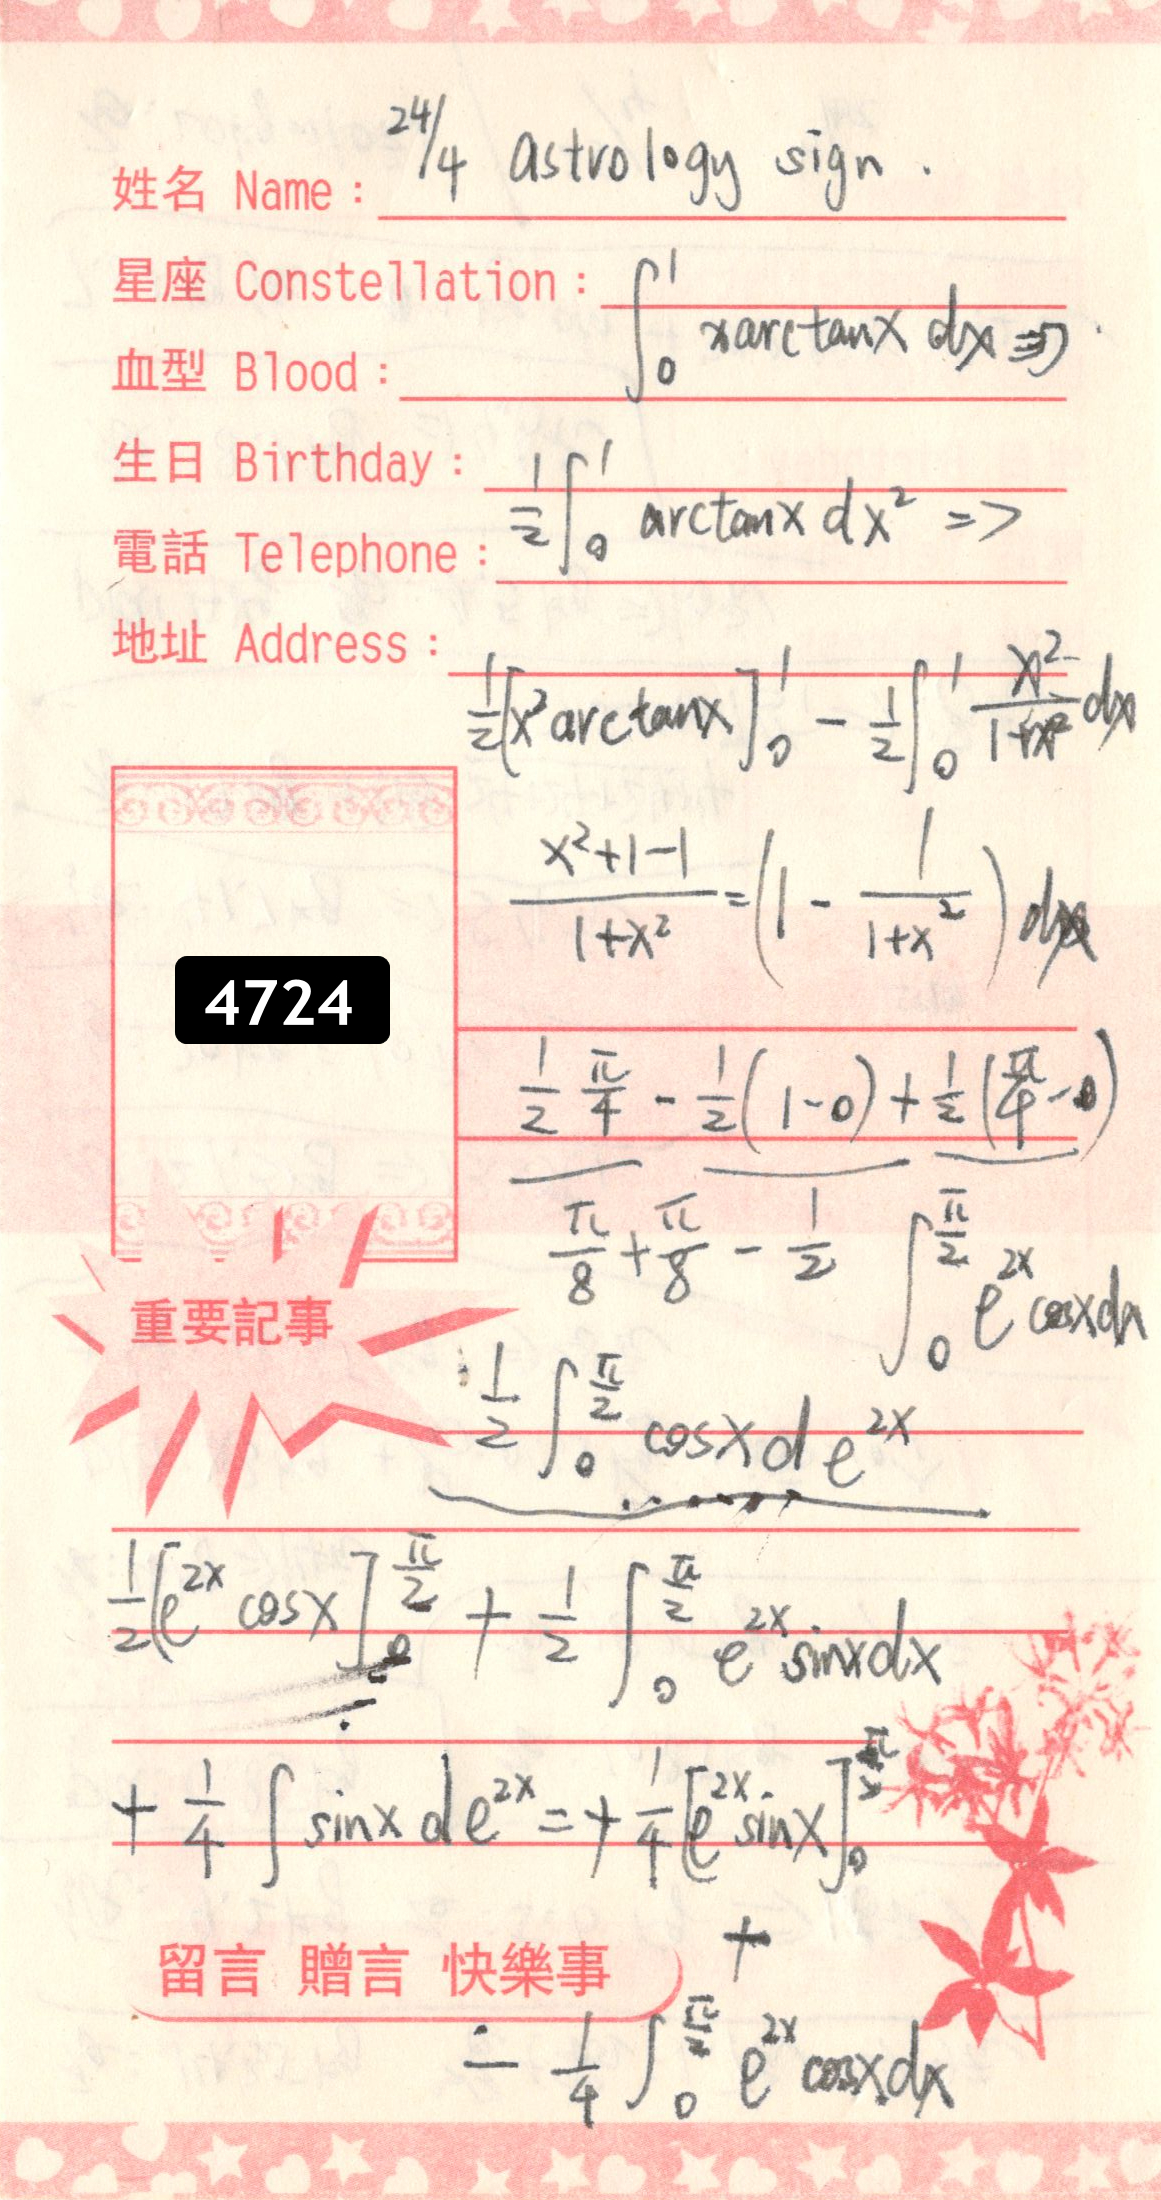 姓名 Name: 24/4 astrology sign.
星座 Constellation: ∫₀¹ x arctanx dx ⇒
血型 Blood:
生日 Birthday:
電話 Telephone: 1/2 ∫₀¹ arctanx dx² =>
地址 Address:
1/2 [x² arctanx]₀¹ - 1/2 ∫₀¹ x²/(1+x²) dx
(x²+1-1)/(1+x²) = (1 - 1/(1+x²)) dx
4724
1/2 π/4 - 1/2 (1-0) + 1/2 (π/4 - 0)
π/8 + π/8 - 1/2
∫₀^(π/2) e^(2x) cosx dx
重要記事
1/2 ∫₀^(π/2) cosx d e^(2x)
1/2 [e^(2x) cosx]₀^(π/2) + 1/2 ∫₀^(π/2) e^(2x) sinx dx
+ 1/4 ∫ sinx d e^(2x) = + 1/4 [e^(2x) sinx]₀
+
留言 贈言 快樂事
- 1/4 ∫₀^(π/2) e^(2x) cosx dx